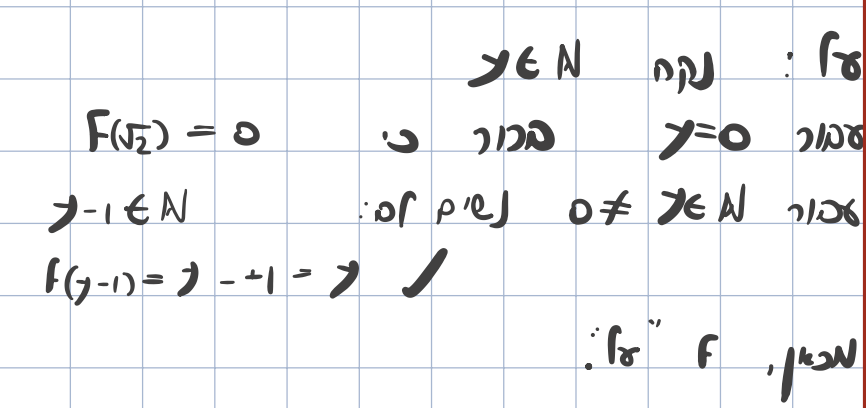 על: נקח y∈ℕ
עבור y=0 ברור כי F(√2) = 0
עבור 0≠ y∈ℕ נשים לב: y-1∈ℕ
f(y-1) = y - +1 = y ✓
מכאן, F "על".